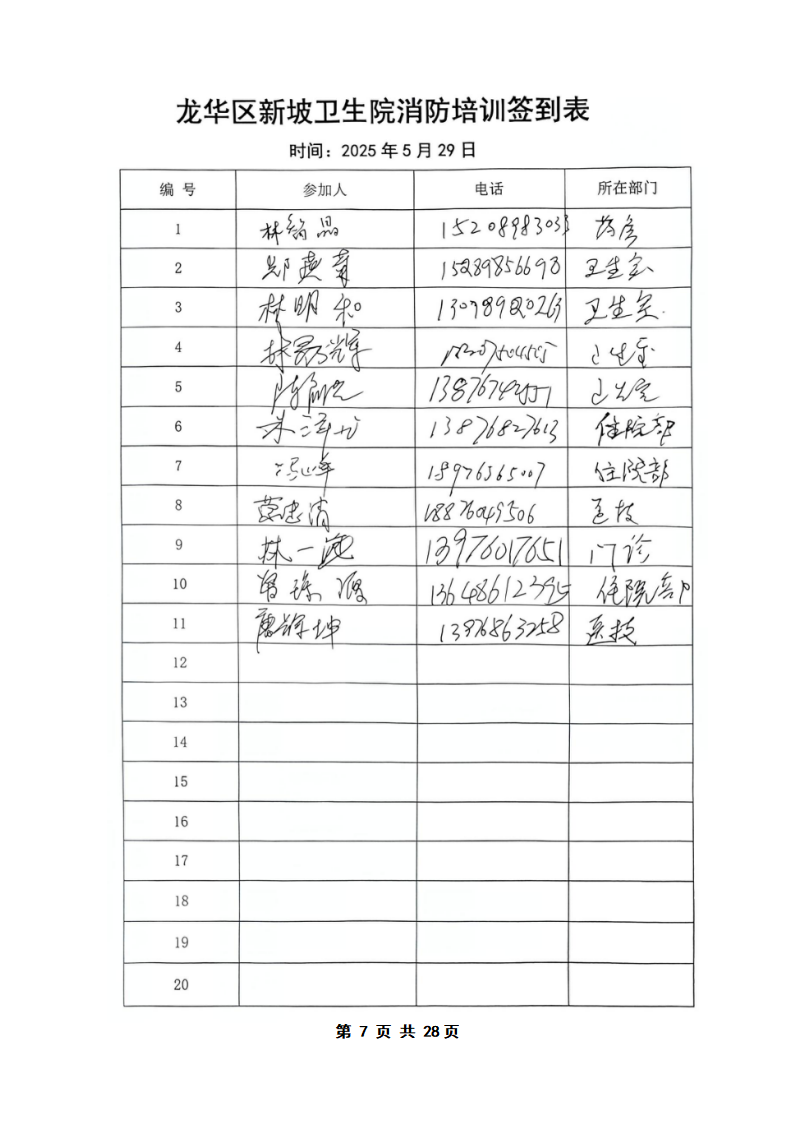 龙华区新坡卫生院消防培训签到表
时间：2025年5月29日
编 号 参加人 电话 所在部门
1 林 晶 15208983033 药房
2 郑燕 15289856698 卫生室
3 林明和 13078980263 卫生室.
4 林 辉 卫生室
5 陈 卫生室
6 朱泽 13876827613 住院部
7 冯山峰 18976565007 住院部
8 莫忠清 18876049506 医技
9 林一 13976017651 门诊
10 曾琼 13648612395 住院部
11 唐 坤 13976863258 医技
12
13
14
15
16
17
18
19
20
第 7 页 共 28页